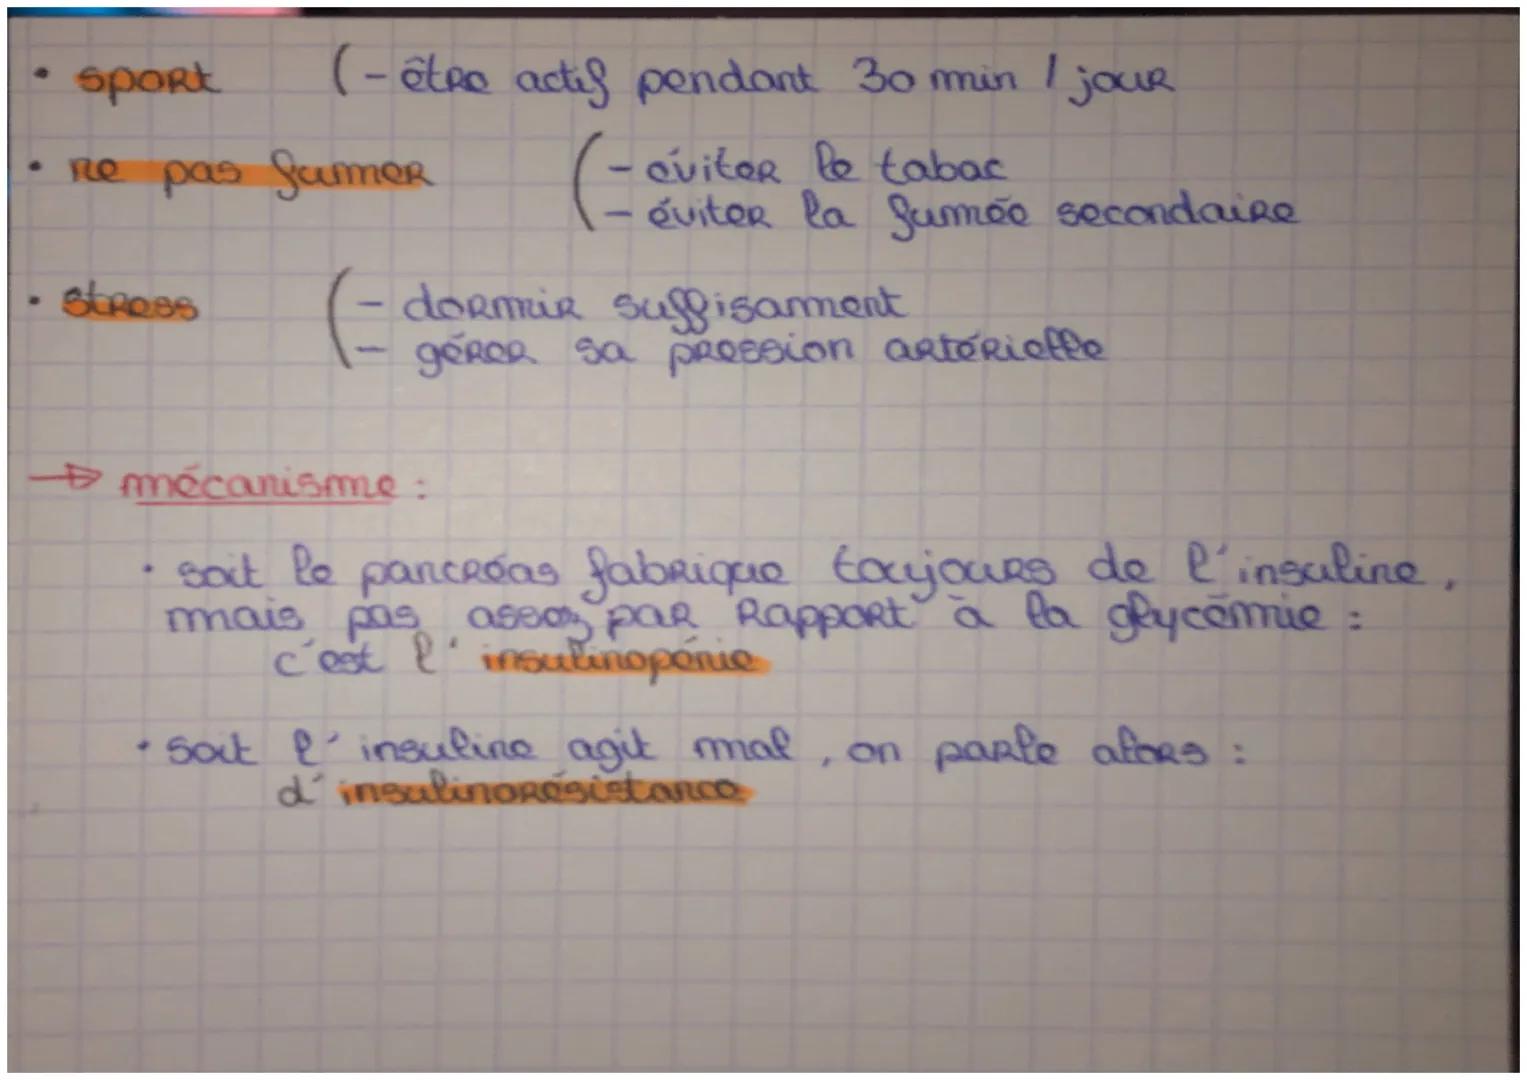 • sport (- être actif pendant 30 min / jour
• ne pas fumer (- éviter le tabac
- éviter la fumée secondaire
• stress (- dormir suffisamment
- gérer sa pression artérielle
→ mécanisme :
• soit le pancréas fabrique toujours de l'insuline,
mais pas assez par rapport à la glycémie :
c'est l'insulinopénie
• soit l'insuline agit mal, on parle alors :
d'insulinorésistance